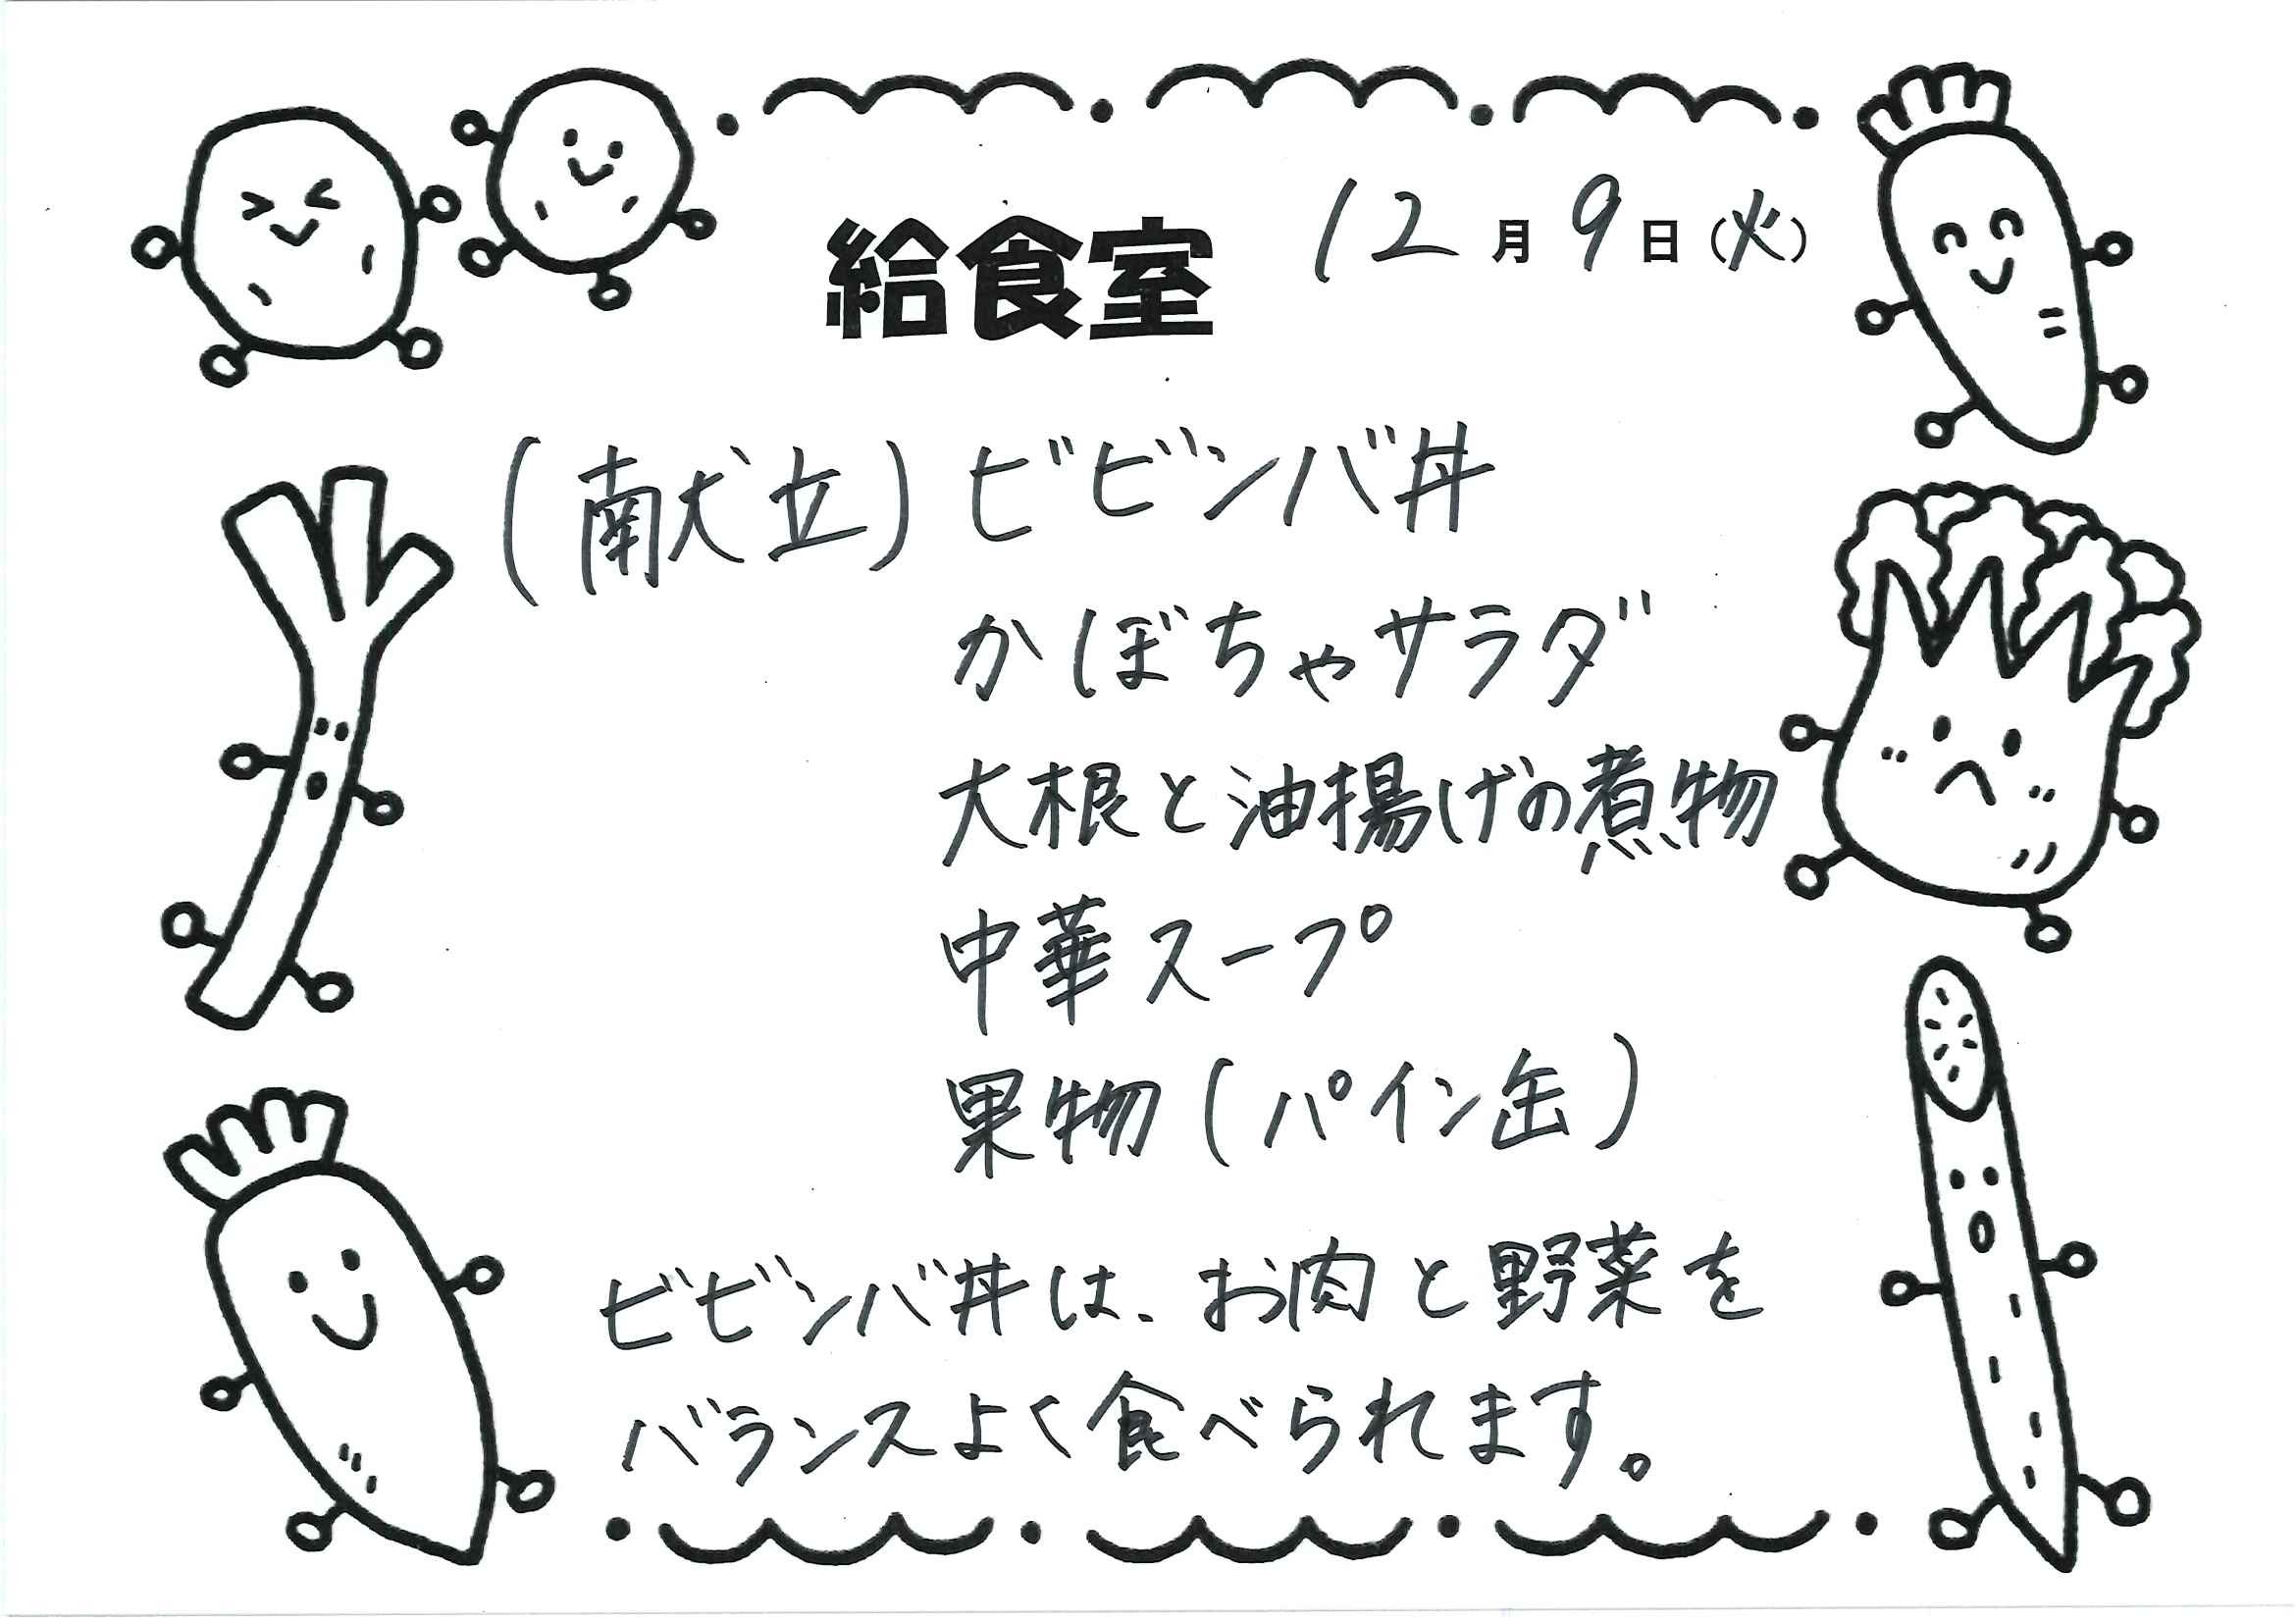 給食室 12月9日(火)
(献立)ビビンバ丼
かぼちゃサラダ
大根と油揚げの煮物
中華スープ
果物(パイン缶)
ビビンバ丼は、お肉と野菜を
バランスよく食べられます。